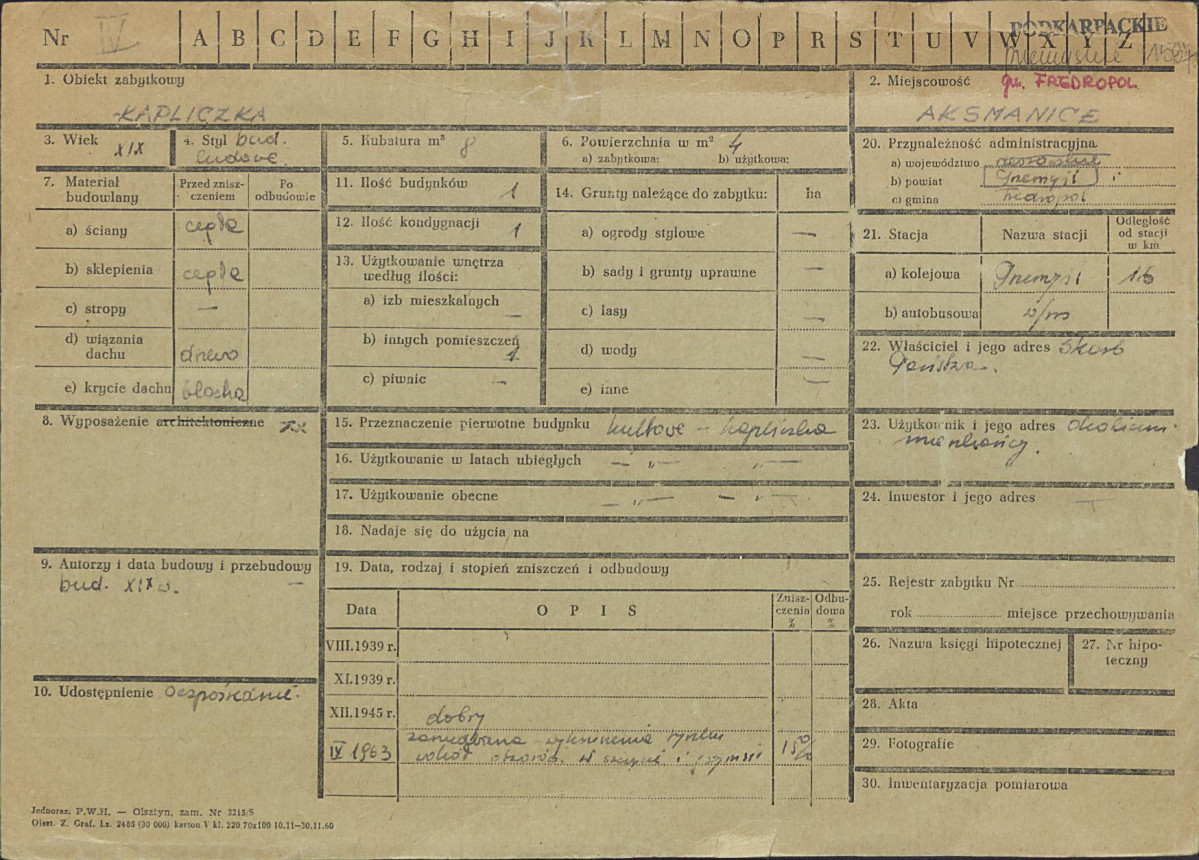 Nr IV A B C D E F G H I J K L M N O P R S T U V W X Y Z
PODKARPACKIE
przemyskie
gm. FREDROPOL
1. Obiekt zabytkowy
KAPLICZKA
2. Miejscowość
AKSMANICE
3. Wiek XIX
4. Styl bud. ludowe
5. Kubatura m³ 8
6. Powierzchnia w m² 4
a) zabytkowa: b) użytkowa:
7. Materiał budowlany
Przed zniszczeniem
Po odbudowie
a) ściany cegła
b) sklepienia cegła
c) stropy —
d) wiązania dachu drewo
e) krycie dachu blacha
8. Wyposażenie architektoniczne
9. Autorzy i data budowy i przebudowy
bud. XIX w. —
10. Udostępnienie bezpośrednie.
11. Ilość budynków 1
12. Ilość kondygnacji 1
13. Użytkowanie wnętrza według ilości:
a) izb mieszkalnych —
b) innych pomieszczeń 1
c) piwnic —
14. Grunty należące do zabytku: ha
a) ogrody stylowe —
b) sady i grunty uprawne —
c) lasy —
d) wody —
e) inne —
15. Przeznaczenie pierwotne budynku kultowe – kapliczka
16. Użytkowanie w latach ubiegłych — „ — — „ —
17. Użytkowanie obecne — „ — — „ —
18. Nadaje się do użycia na
19. Data, rodzaj i stopień zniszczeń i odbudowy
Data OPIS Zniszczenia % Odbudowa %
VIII.1939 r.
XI.1939 r.
XII.1945 r. dobry
IV 1963 wykruszenia tynku 15%
wokół otworów w szczycie i gzymsie
20. Przynależność administracyjna
a) województwo rzeszowskie
b) powiat Przemyśl
c) gmina Fredropol
21. Stacja Nazwa stacji Odległość od stacji w km
a) kolejowa Przemyśl 16
b) autobusowa w/ms
22. Właściciel i jego adres Skarb
Państwa.
23. Użytkownik i jego adres okoliczni
mieszkańcy.
24. Inwestor i jego adres —
25. Rejestr zabytku Nr
rok miejsce przechowywania
26. Nazwa księgi hipotecznej
27. Nr hipoteczny
28. Akta
29. Fotografie
30. Inwentaryzacja pomiarowa
Jednoraz. P.W.H. — Olsztyn, zam. Nr 3215/S
Olszt. Z. Graf. Lz. 2485 (30 000) karton V kl. 220 70x100 10.11—30.11.60